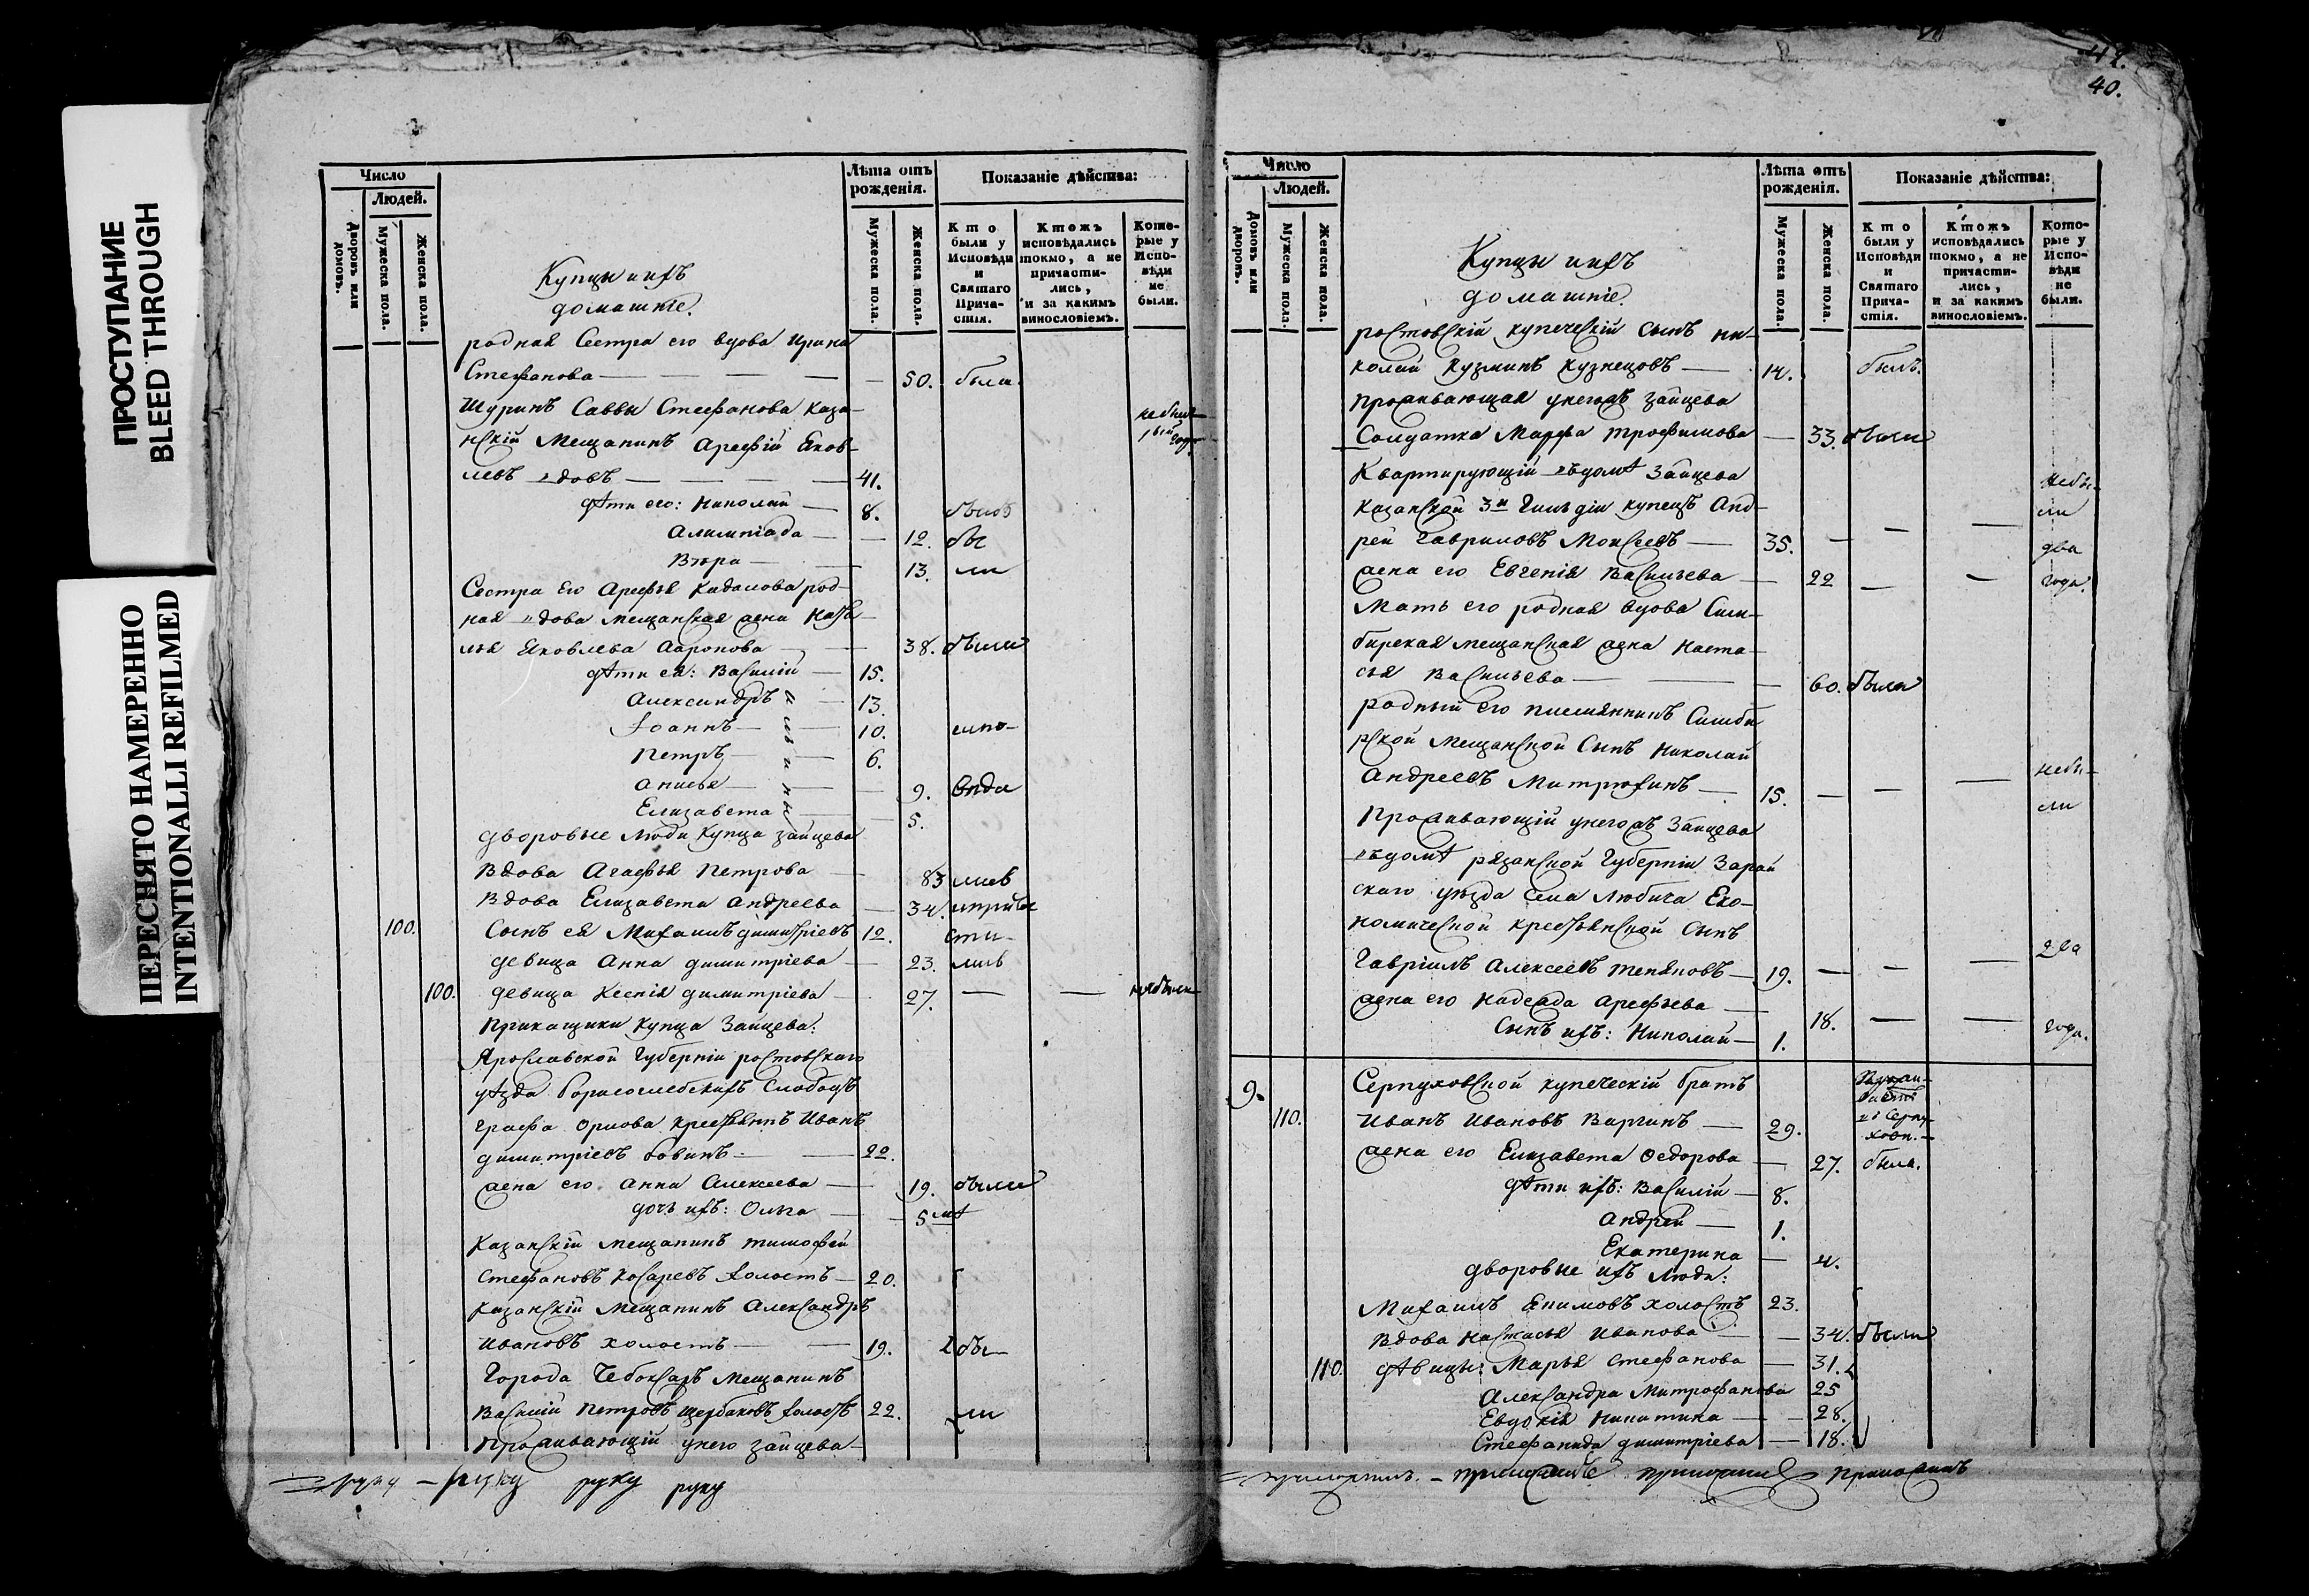 ПРОСТУПАНИЕ
BLEED THROUGH
ПЕРЕСНЯТО НАМЕРЕННО
INTENTIONALLI REFILMED
Число
Людей.
Дворовъ или домовъ.
Мужеска пола.
Женска пола.
Купцы и ихъ
домашніе.
Лѣта отъ рожденія.
Мужеска пола.
Женска пола.
Показаніе дѣйства:
Кто были у Исповѣди и Святаго Причастія.
Ктожъ исповѣдались токмо, а не причастились, и за какимъ винословіемъ.
Которые у Исповѣди не были.
родная Сестра его вдова Ирина
Стефанова — 50. была
Шуринъ Саввы Стефанова Каза-
нскій Мещанинъ Арефій Яков-
левъ вдовъ — 41.
дѣти его: Николай — 8.
Алимпіада — 12. бы
Вѣра — 13. ли
Сестра его Арефья род-
ная вдова мещанская жена Ната-
лья Яковлева — 38. были
дѣти ея: Василій — 15.
Александръ — 13.
Іоаннъ — 10.
Петръ — 6.
Анисья — 9.
Елизавета — 5.
дворовые люди купца Зайцева
Вдова Агафья Петрова — 83
Вдова Елизавета Андреева — 34.
100. Сынъ ея Михаилъ Димитріевъ 12.
девица Анна Димитріева — 23.
100. девица Ксенія Димитріева — 27. — — не была
Прикащики купца Зайцева:
Ярославской Губерніи ростовскаго
уѣзда Борисоглебскихъ Слободъ
графа Орлова крестьянинъ Иванъ
Димитріевъ — 22.
жена его Анна Алексеева — 19. были
дочь ихъ: Ольга — 5
Казанскій мещанинъ Тимофей
Стефановъ Косаревъ холостъ — 20.
Казанскій Мещанинъ Александръ
Ивановъ холостъ — 19. бы-
Города Чебоксаръ Мещанинъ
Василій Петровъ Щербаковъ холостъ 22. ли
Проживающій у него Зайцева
руку — руку руку руку
40.
Число
Людей.
Домовъ или дворовъ.
Мужеска пола.
Женска пола.
Купцы и ихъ
домашніе.
Лѣта отъ рожденія.
Мужеска пола.
Женска пола.
Показаніе дѣйства:
Кто были у Исповѣди и Святаго Причастія.
Ктожъ исповѣдались токмо, а не причастились, и за какимъ винословіемъ.
Которые у Исповѣди не были.
ростовскій купеческій сынъ Ни-
колай Кузминъ Кузнецовъ — 14. былъ.
Проживающая у негожъ Зайцева
Солдатка Марфа Трофимова — 33. были
Квартирующій въ домѣ Зайцева
Казанской 3й Гильдіи купецъ Анд-
рей Гавриловъ Моисеевъ — 35. —
жена его Евгенія Васильева — 22 — —
Мать его родная вдова Сим-
бирская мещанская жена Наста-
сья Васильева — 60. была
родный его племянникъ Симби
рской Мещанской Сынъ Николай
Андреевъ Митрохинъ — 15. — — — небы-
ли
Проживающій у негожъ Зайцева
въ домѣ рязанской Губерніи Зарай
скаго уѣзда села Любича Эко-
номической крестьянской Сынъ
Гавріилъ Алексеевъ — 19. — — — два
жена его Надежда Арефьева — 18. — —
Сынъ ихъ: Николай — 1. года.
9. Серпуховской купеческій братъ
110. Иванъ Ивановъ Варгинъ — 29.
жена его Елизавета Федорова — 27. была.
дѣти ихъ: Василій — 8.
Андрей — 1.
Екатерина — 4.
дворовые ихъ люди:
Михаилъ Екимовъ холостъ 23.
Вдова Настасья Иванова — 34. были
110. дѣвицы: Марья Стефанова — 31.
Александра Митрофанова 25
Евдокія Никитина — 28.
Стефанида Димитріева — 18.
приложилъ. — приложилъ приложилъ приложилъ